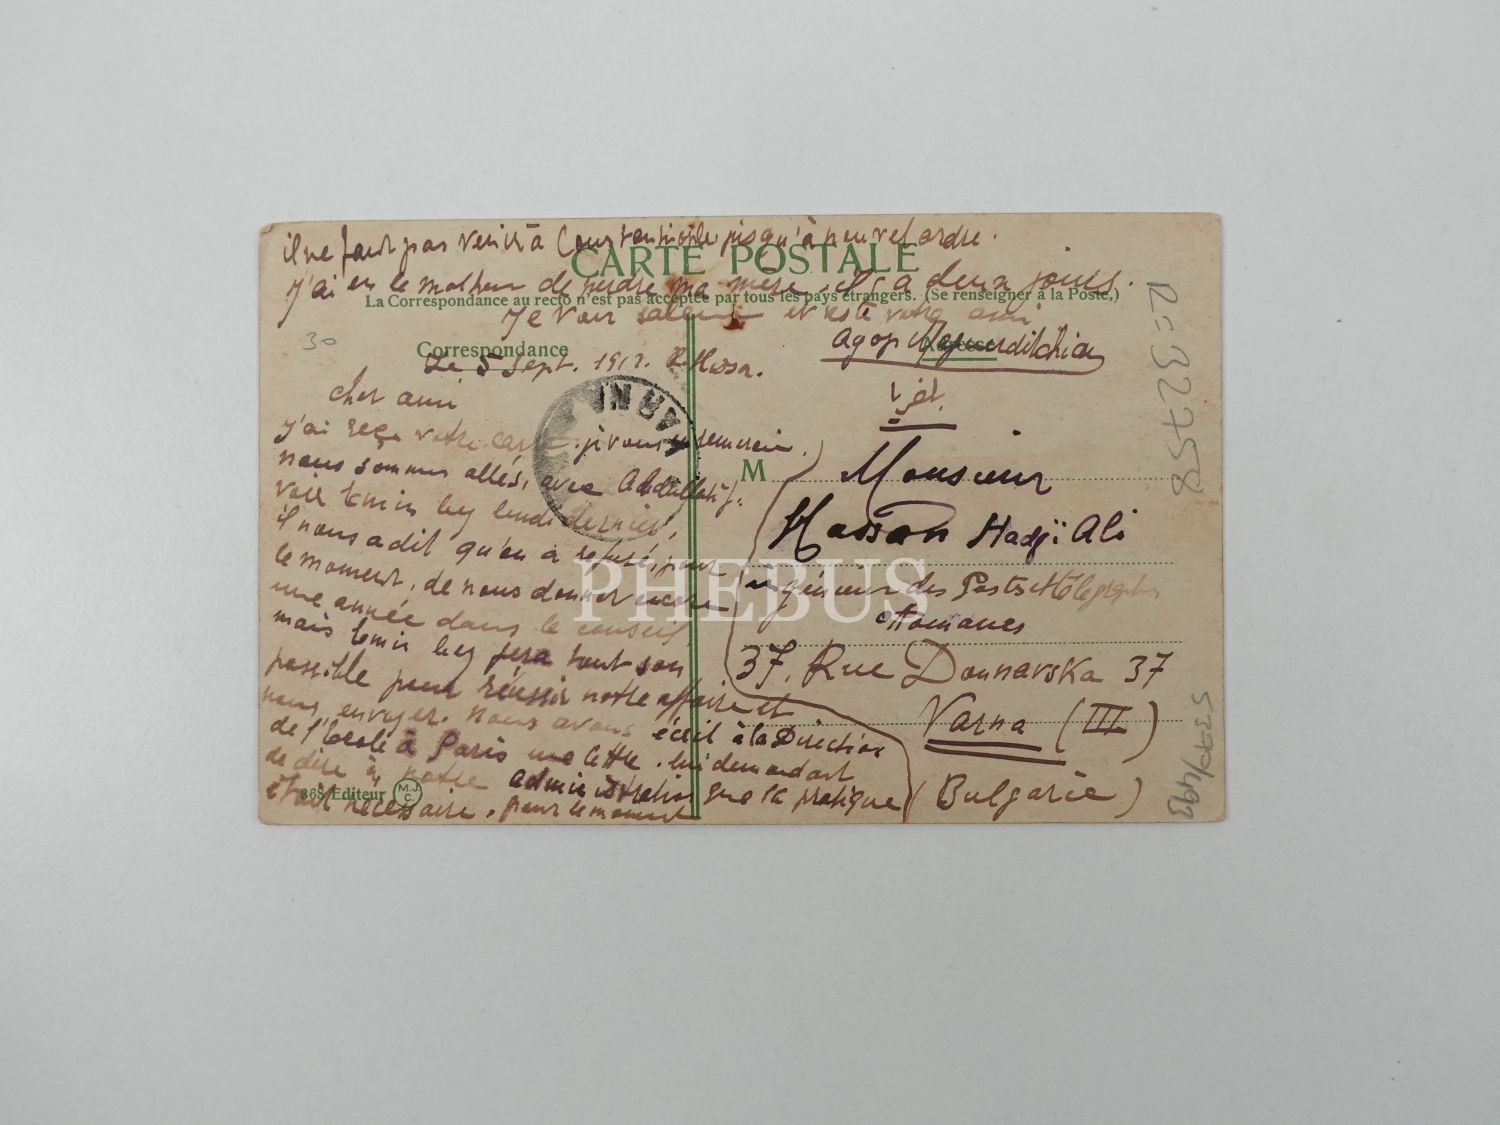 il ne faut pas venir à Constantinople jusqu'à nouvel ordre.
CARTE POSTALE
j'ai eu le malheur de perdre ma mère, il y a deux jours.
La Correspondance au recto n'est pas acceptée par tous les pays étrangers. (Se renseigner à la Poste.)
je vous salue et reste votre ami
Agop
30
Correspondance
Le 5 Sept. 191
cher ami
j'ai reçu votre carte. je vous remercie.
nous sommes allés, avec Abdullatif.
voir Emin bey lundi dernier,
il nous a dit qu'on a refusé, pour
le moment, de nous donner encore
une année dans le conseil,
mais Emin bey fera tout son
possible pour réussir notre affaire et
nous envoyer. Nous avons écrit à la Direction
de l'école à Paris une lettre. lui demandant
de dire à notre administration que la pratique
était nécessaire. pour le moment
368 Editeur M.J.C.
VARNA
M
Monsieur
Hassan Hadji Ali
ingénieur des Postes et Télégraphes
Ottomanes
37, Rue Donnavska 37
Varna (III)
(Bulgarie)
R-32758
PHEBUS